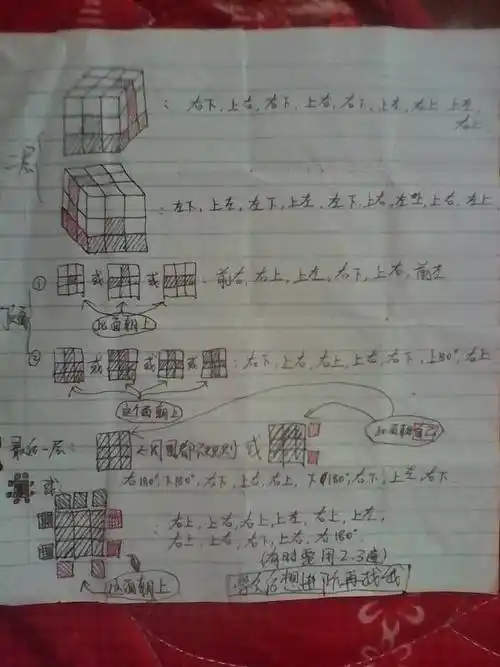 二层
：右下，上右，右下，上右，右下，上左，右上，上左，右上
：左下，上左，左下，上左，左下，上右，左上，上右，左上
顶面
① 或 或 ：前右，右上，上左，右下，上右，前左
此面朝上
② 或 或 或 ：右下，上右，右上，上右，右下，上180°，右上
这个面朝上
最后一层： 四周都 规则 或
此面朝
右180°，下180°，右下，上右，右上，下180°，右下，上左，右下
或
：右上，上右，右上，上左，右上，上左，
右上，上右，右下，上右，右180°
(有时要用2-3遍)
此面朝上
学会后想进阶再找我